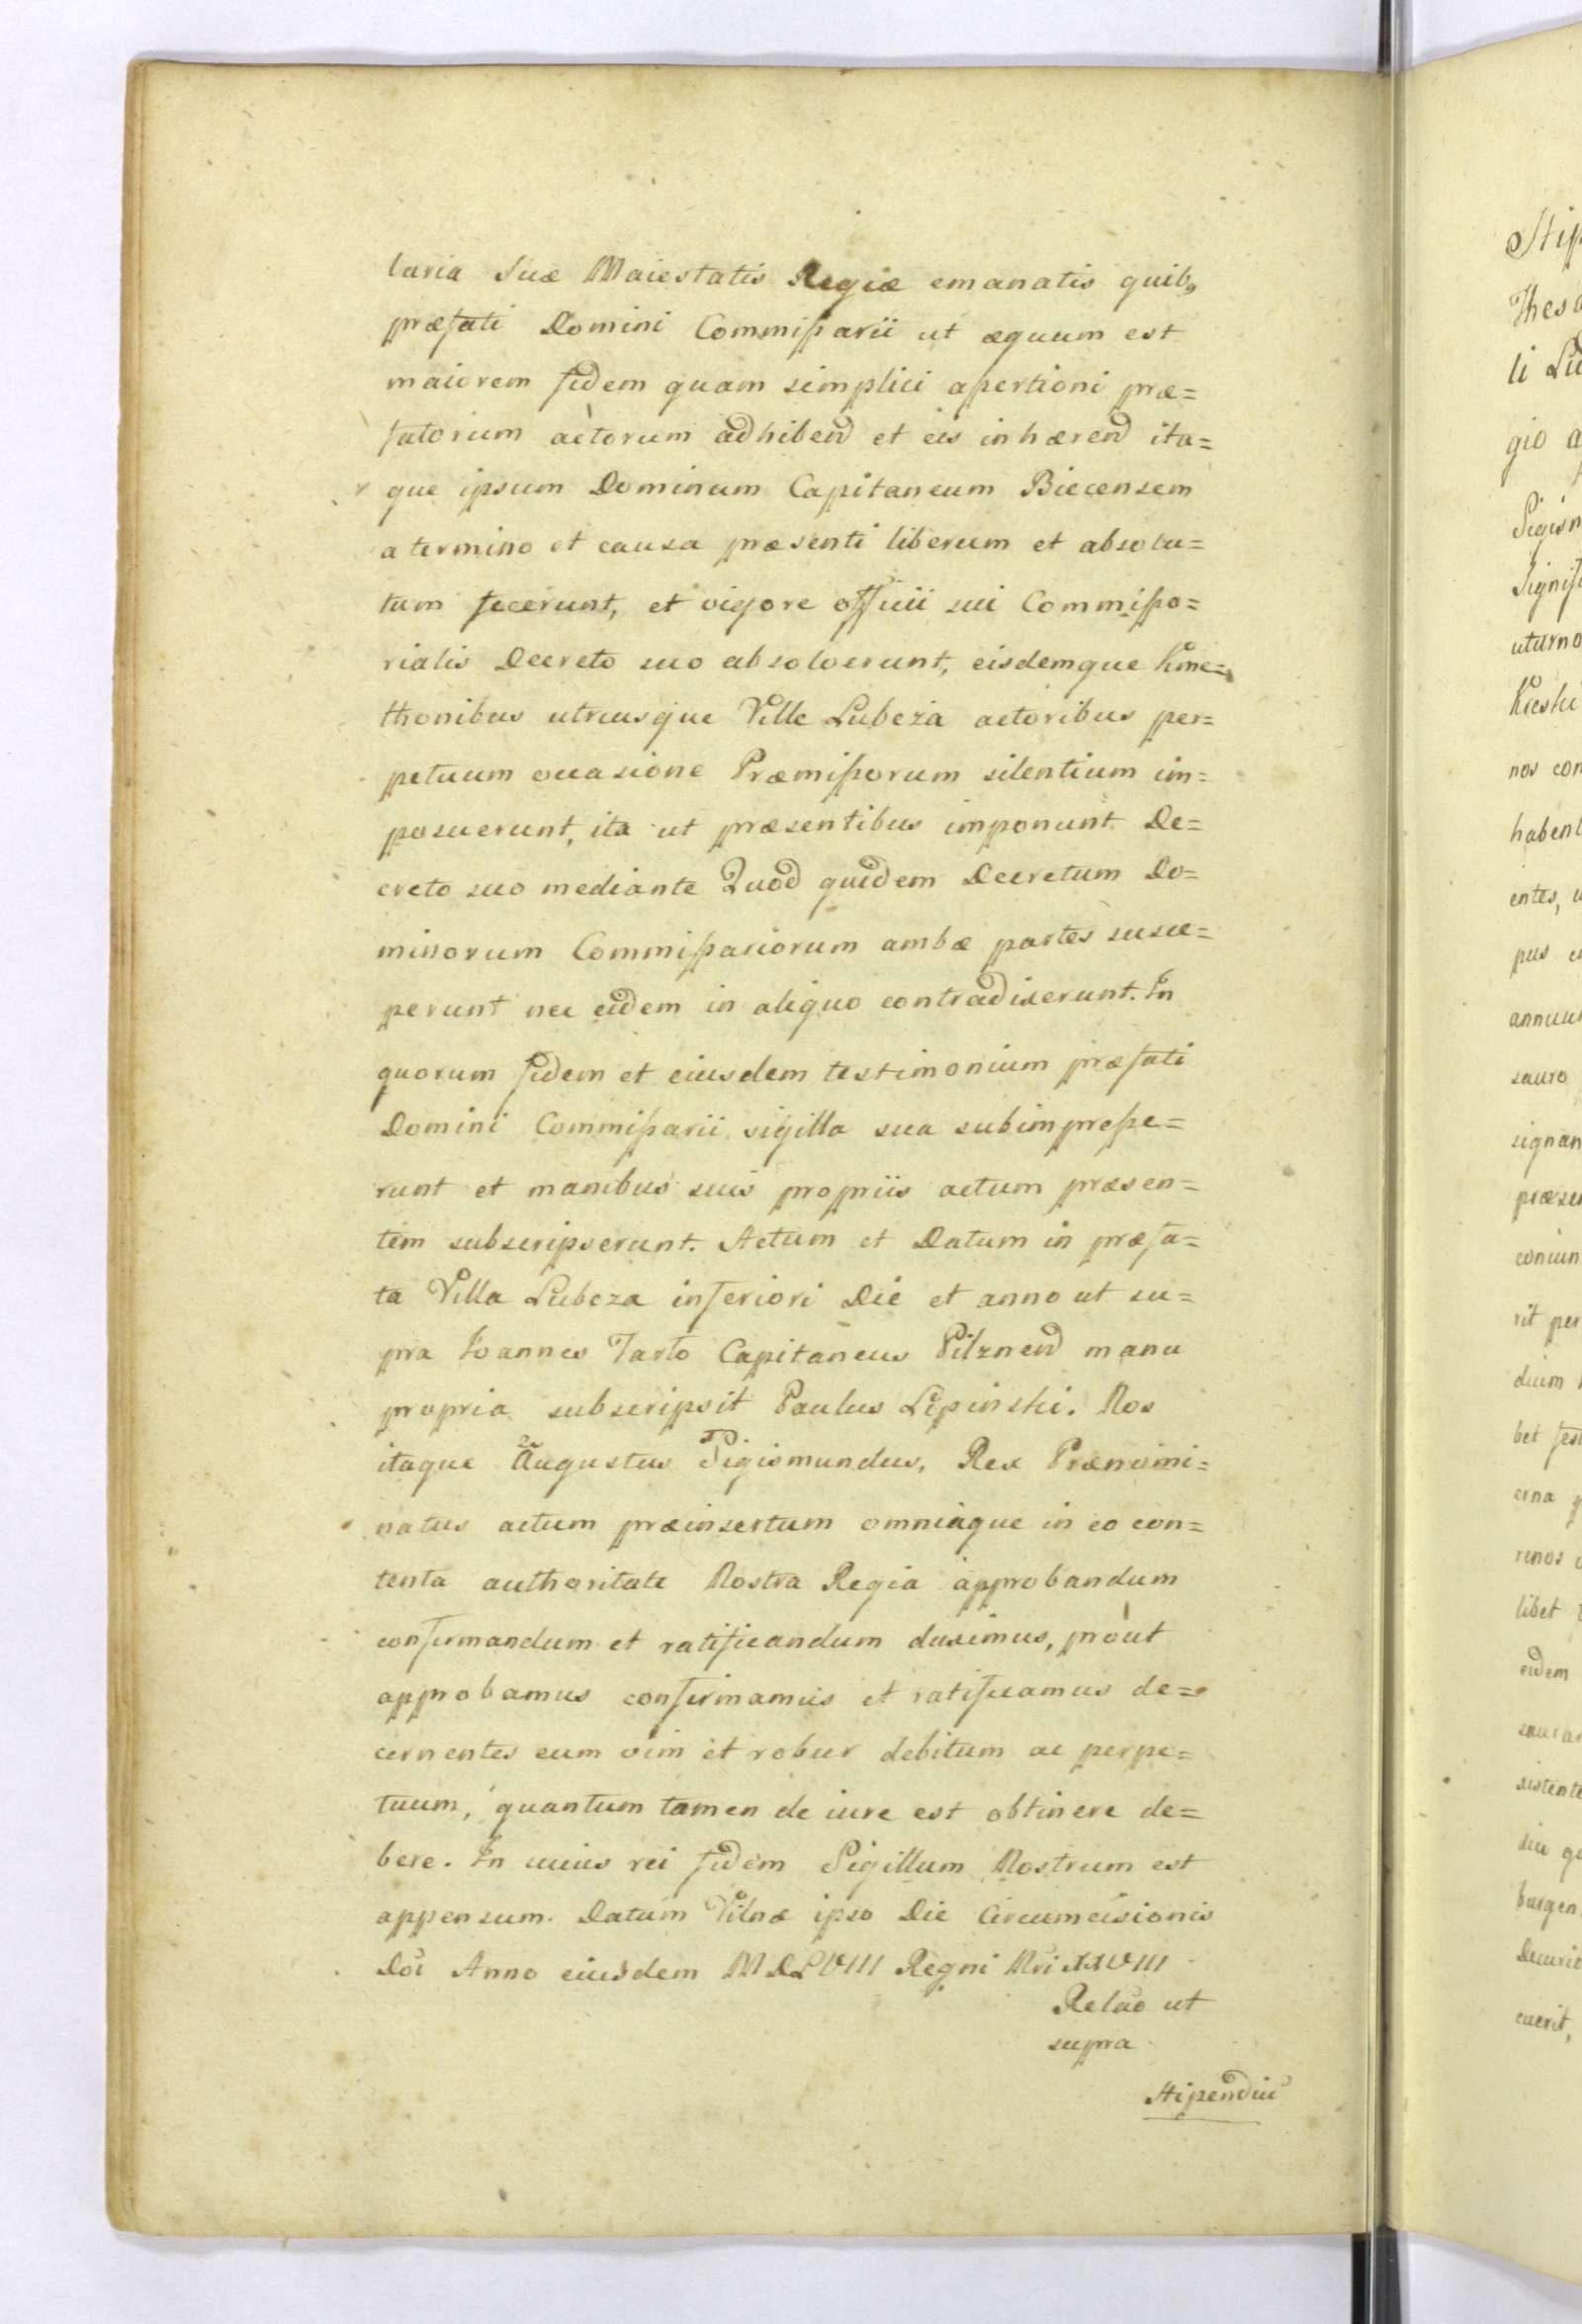 laria Suæ Maiestatis Regiæ emanatis quibꝫ
præfati Domini Commißarii ut æquum est
maiorem fidem quam simplici apertioni præ=
fatorum actorum adhibend et eis inhærend ita=
que ipsum Dominum Capitaneum Biecensem
a termino et causa præsenti liberum et absolu=
tum fecerunt, et vigore officii sui Commißo=
rialis Decreto suo absolverunt, eisdemque Kme=
thonibus utriusque Ville Lubcża actoribus per=
petuum occasione Præmißorum silentium im=
posuerunt, ita ut præsentibus imponunt De=
creto suo mediante Quod quidem Decretum Do=
minorum Commißariorum ambæ partes susce=
perunt nec eidem in aliquo contradixerunt. In
quorum fidem et eiusdem testimonium præfati
Domini Commißarii sigilla sua subimpreße=
runt et manibus suis propriis actum præsen=
tem subscripserunt. Actum et Datum in præfa=
ta Villa Lubcza inferiori Die et anno ut su=
pra Ioannes Tarlo Capitaneus Pilznend manu
propria subscripsit Paulus Lipinski. Nos
itaque Augustus Sigismundus, Rex Prænomi=
natus actum præinsertum omniaque in eo con=
tenta authoritate Nostra Regia approbandum
confirmandum et ratificandum duximus, pròut
approbamus confirmamus et ratificamus de=
cernentes eum vim et robur debitum ac perpe=
tuum, quantum tamen de iure est obtinere de=
bere. In cuius rei fidem Sigillum Nostrum est
appensum. Datum Vilnæ ipso Die Circumcisionis
Doi Anno eiusdem MDLVIII Regni Nri XXVIII
Relao ut
supra
Stipendiu
Thesa
gio a
uturno
nos con
habent
entes, u
annuu
sauro
signan
coniun
rit per
libet
eidem
sistente
burgen